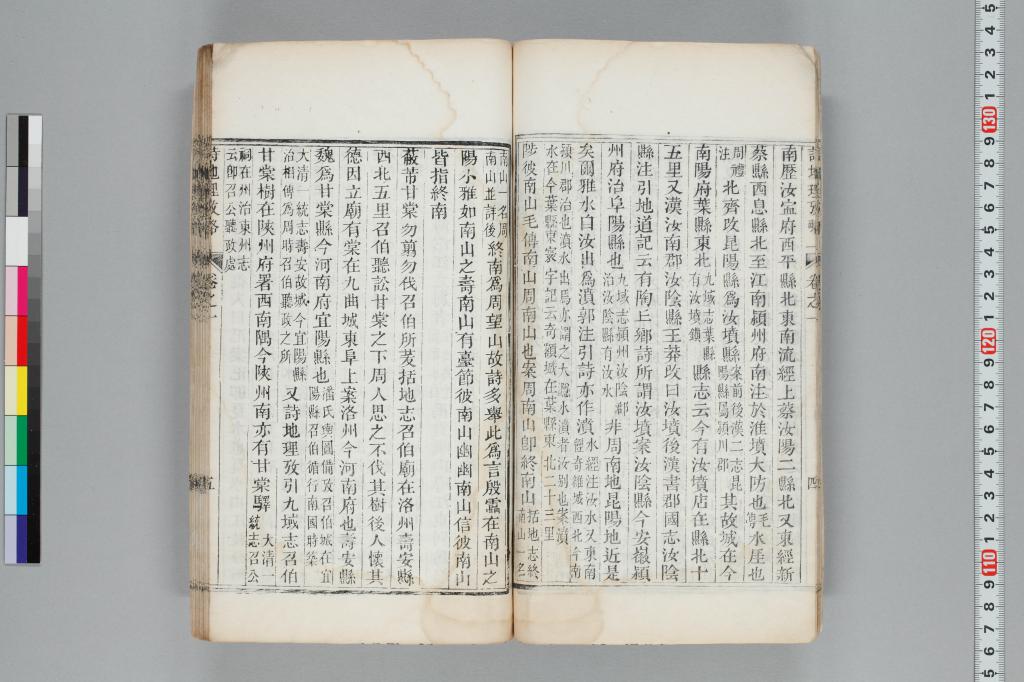 南歷汝寍府西平縣北東南流經上蔡汝陽二縣北又東經新
蔡縣西息縣北至江南潁州府南注於淮墳大防也毛傳水厓也
周禮注北齊攻昆陽縣爲汝墳縣案前後漢二志昆陽縣屬潁川郡其故城在今
南陽府葉縣東北九域志葉縣有汝墳鎮縣志云今有汝墳店在縣北十
五里又漢汝南郡汝陰縣王莽改曰汝墳後漢書郡國志汝陰
縣注引地道記云有陶丘鄉詩所謂汝墳案汝陰縣今安徽潁
州府治阜陽縣也九域志潁州汝陰郡治汝陰縣有汝水非周南地昆陽地近是
矣爾雅水自汝出爲濆郭注引詩亦作濆水經注汝水又東南逕奇雒城西北今南
潁川郡治也濆水出焉亦謂之大㶏水濆者汝別也案濆
水在今葉縣東寰宇記云奇雒城在葉縣東北二十三里
陟彼南山毛傳南山周南山也案周南山卽終南山括地志終南山一名
南山一名周
南山並詳後終南爲周望山故詩多舉此爲言殷靁在南山之
陽小雅如南山之壽南山有臺節彼南山幽幽南山信彼南山
皆指終南
蔽芾甘棠勿翦勿伐召伯所茇括地志召伯廟在洛州壽安縣
西北五里召伯聽訟甘棠之下周人思之不伐其樹後人懷其
德因立廟有棠在九曲城東阜上案洛州今河南府也壽安縣
魏爲甘棠縣今河南府宜陽縣也潘氏輿圖備攷召伯城在宜陽縣召伯循行南國時築
大清一統志壽安故城今宜陽縣治相傳爲周時召伯聽政之所又詩地理攷引九域志召伯
甘棠樹在陝州府署西南隅今陝州南亦有甘棠驛大清一統志召公
祠在州治東州志云卽召公聽政處
詩地理攷略
卷之一
四
詩地理攷略
卷之一
五